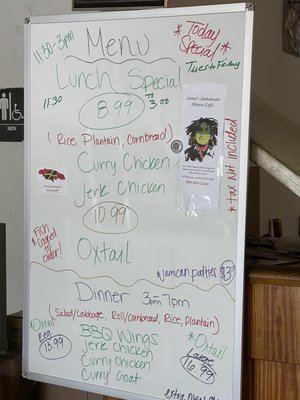 11:30-3pm
Menu
*Today Special*
Tues to Friday
Lunch Special
11:30 TO 3:00
8.99
(Rice, Plantain, Cornbread)
Curry Chicken
Jerk Chicken
10.99
Oxtail
Lana's Jamaican
House Café
* tax Not Included
MEN
Fish
*Cooked
to
order!
*Jamican patties $3
Dinner 3pm 7pm
(Salad/Cabbage, Roll/Cornbread, Rice, Plantain)
*Oxtail
Reg
13.99
BBQ Wings
Jerk Chicken
Curry Chicken
Curry Goat
*Oxtail
Large
16.99
extra